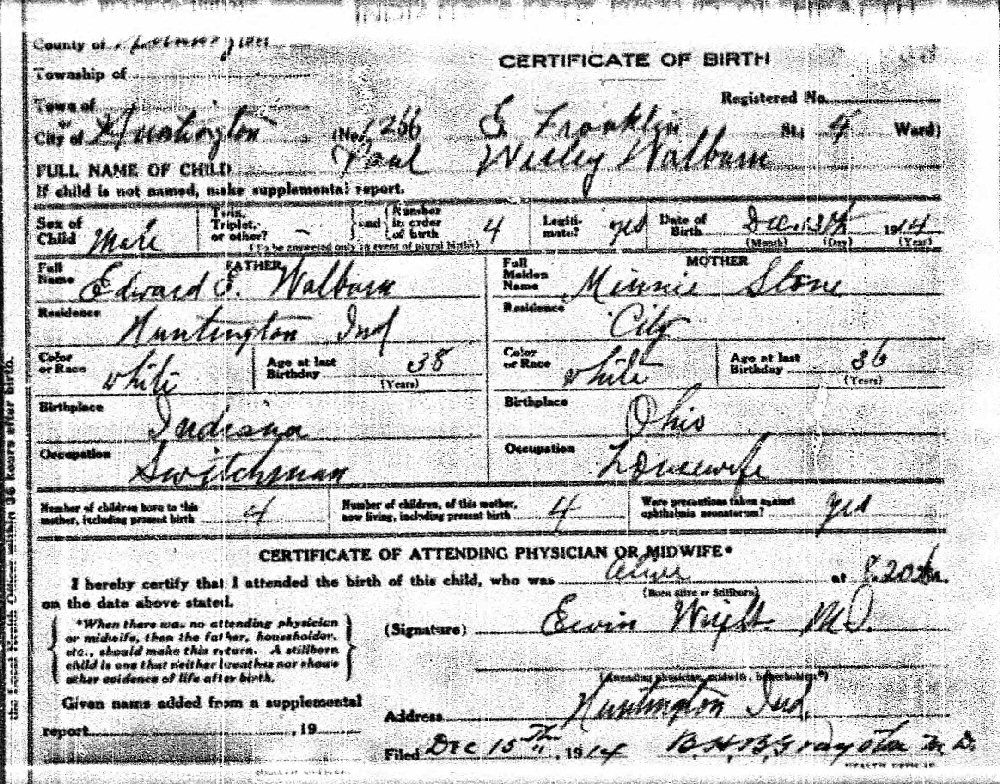 County of Huntington
CERTIFICATE OF BIRTH
Township of
Town of
or
Registered No.
City of Huntington (No. 1266 S Franklin St; 4 Ward)
FULL NAME OF CHILD Paul Wesley Walburn
If child is not named, make supplemental report.
Sex of Child Male
Twin, Triplet, or other? - and Number in order of birth 4
(To be answered only in event of plural births)
Legitimate? yes
Date of Birth Dec. 13th 1914
(Month) (Day) (Year)
FATHER
Full Name Edward E. Walburn
MOTHER
Full Maiden Name Minnie Stone
Residence Huntington Ind
Residence City
Color or Race white
Age at last Birthday 38
(Years)
Color or Race white
Age at last Birthday 36
(Years)
Birthplace Indiana
Birthplace Ohio
Occupation Switchman
Occupation housewife
Number of children born to this mother, including present birth 4
Number of children, of this mother, now living, including present birth 4
Were precautions taken against ophthalmia neonatorum? yes
CERTIFICATE OF ATTENDING PHYSICIAN OR MIDWIFE*
I hereby certify that I attended the birth of this child, who was alive at 8.20
(Born alive or Stillborn)
on the date above stated.
*When there was no attending physician
or midwife, then the father, householder,
etc., should make this return. A stillborn
child is one that neither breathes nor shows
other evidence of life after birth.
(Signature) Erwin Wright M.D.
(Attending physician, midwife, householder*)
Given name added from a supplemental
report , 19
Address Huntington Ind.
Filed Dec 15th, 1914 B.H.B. Grayston M.D.
HEALTH OFFICER
the Local Health Officer within 36 hours after birth.